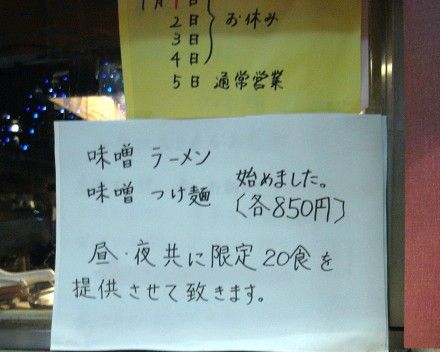 1月1日
2日
3日
4日
お休み
5日 通常営業
味噌 ラーメン
味噌 つけ麺
始めました。
〔各850円〕
昼・夜共に限定20食を
提供させて致きます。